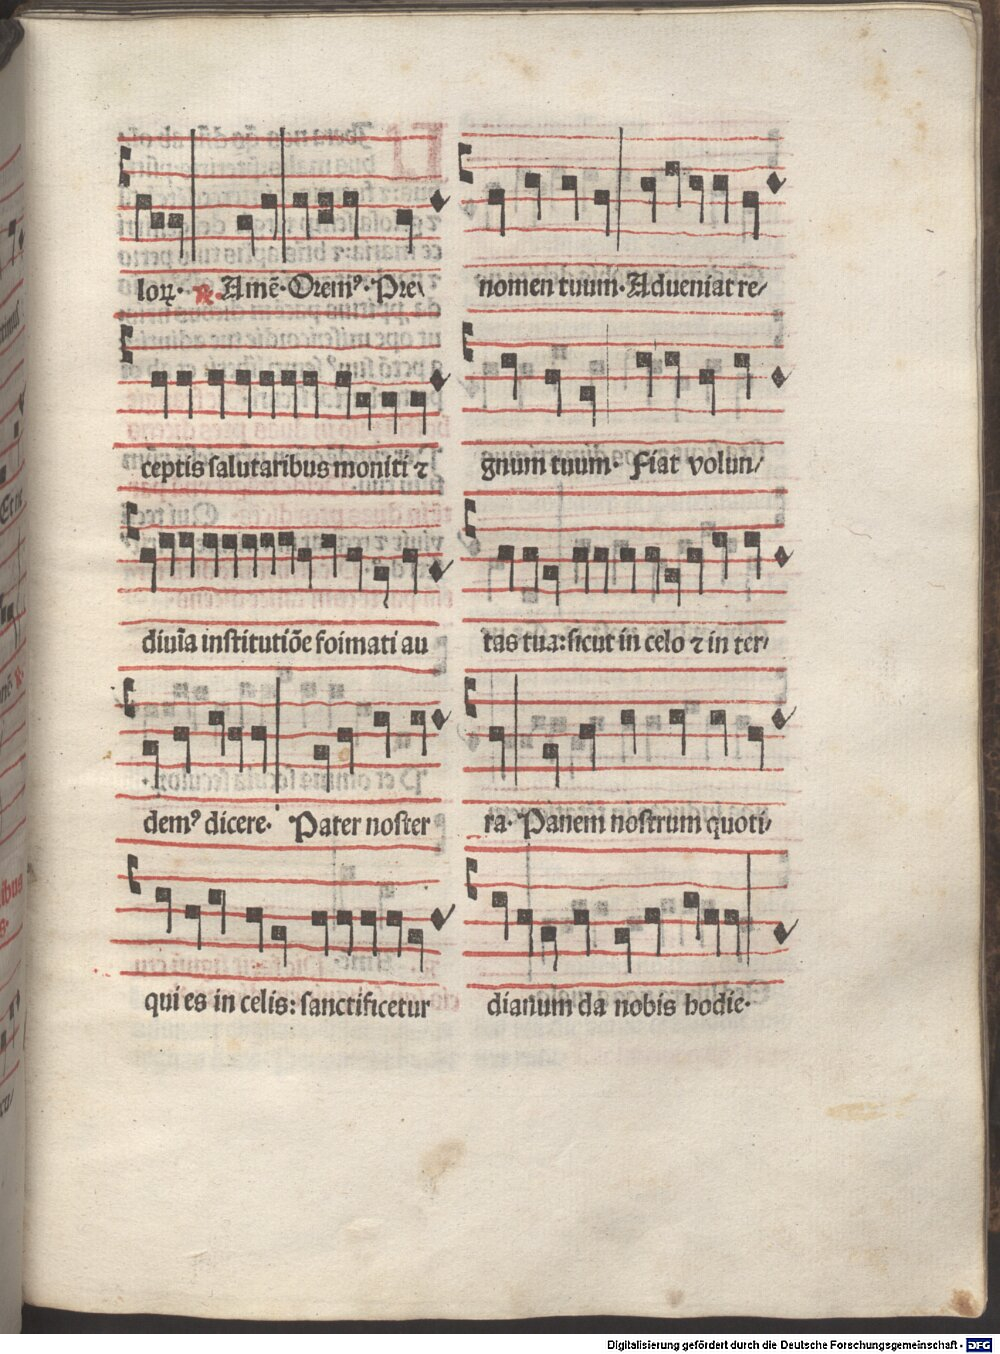 loꝝ. ℟. Amē. Oremꝰ. Pre/
ceptis salutaribus moniti ⁊
diuīa institutiōe formati au
demꝰ dicere. Pater noster
qui es in celis: sanctificetur
nomen tuum. Adueniat re/
gnum tuum. Fiat volun/
tas tua: sicut in celo ⁊ in ter/
ra. Panem nostrum quoti/
dianum da nobis hodie.
Digitalisierung gefördert durch die Deutsche Forschungsgemeinschaft - DFG